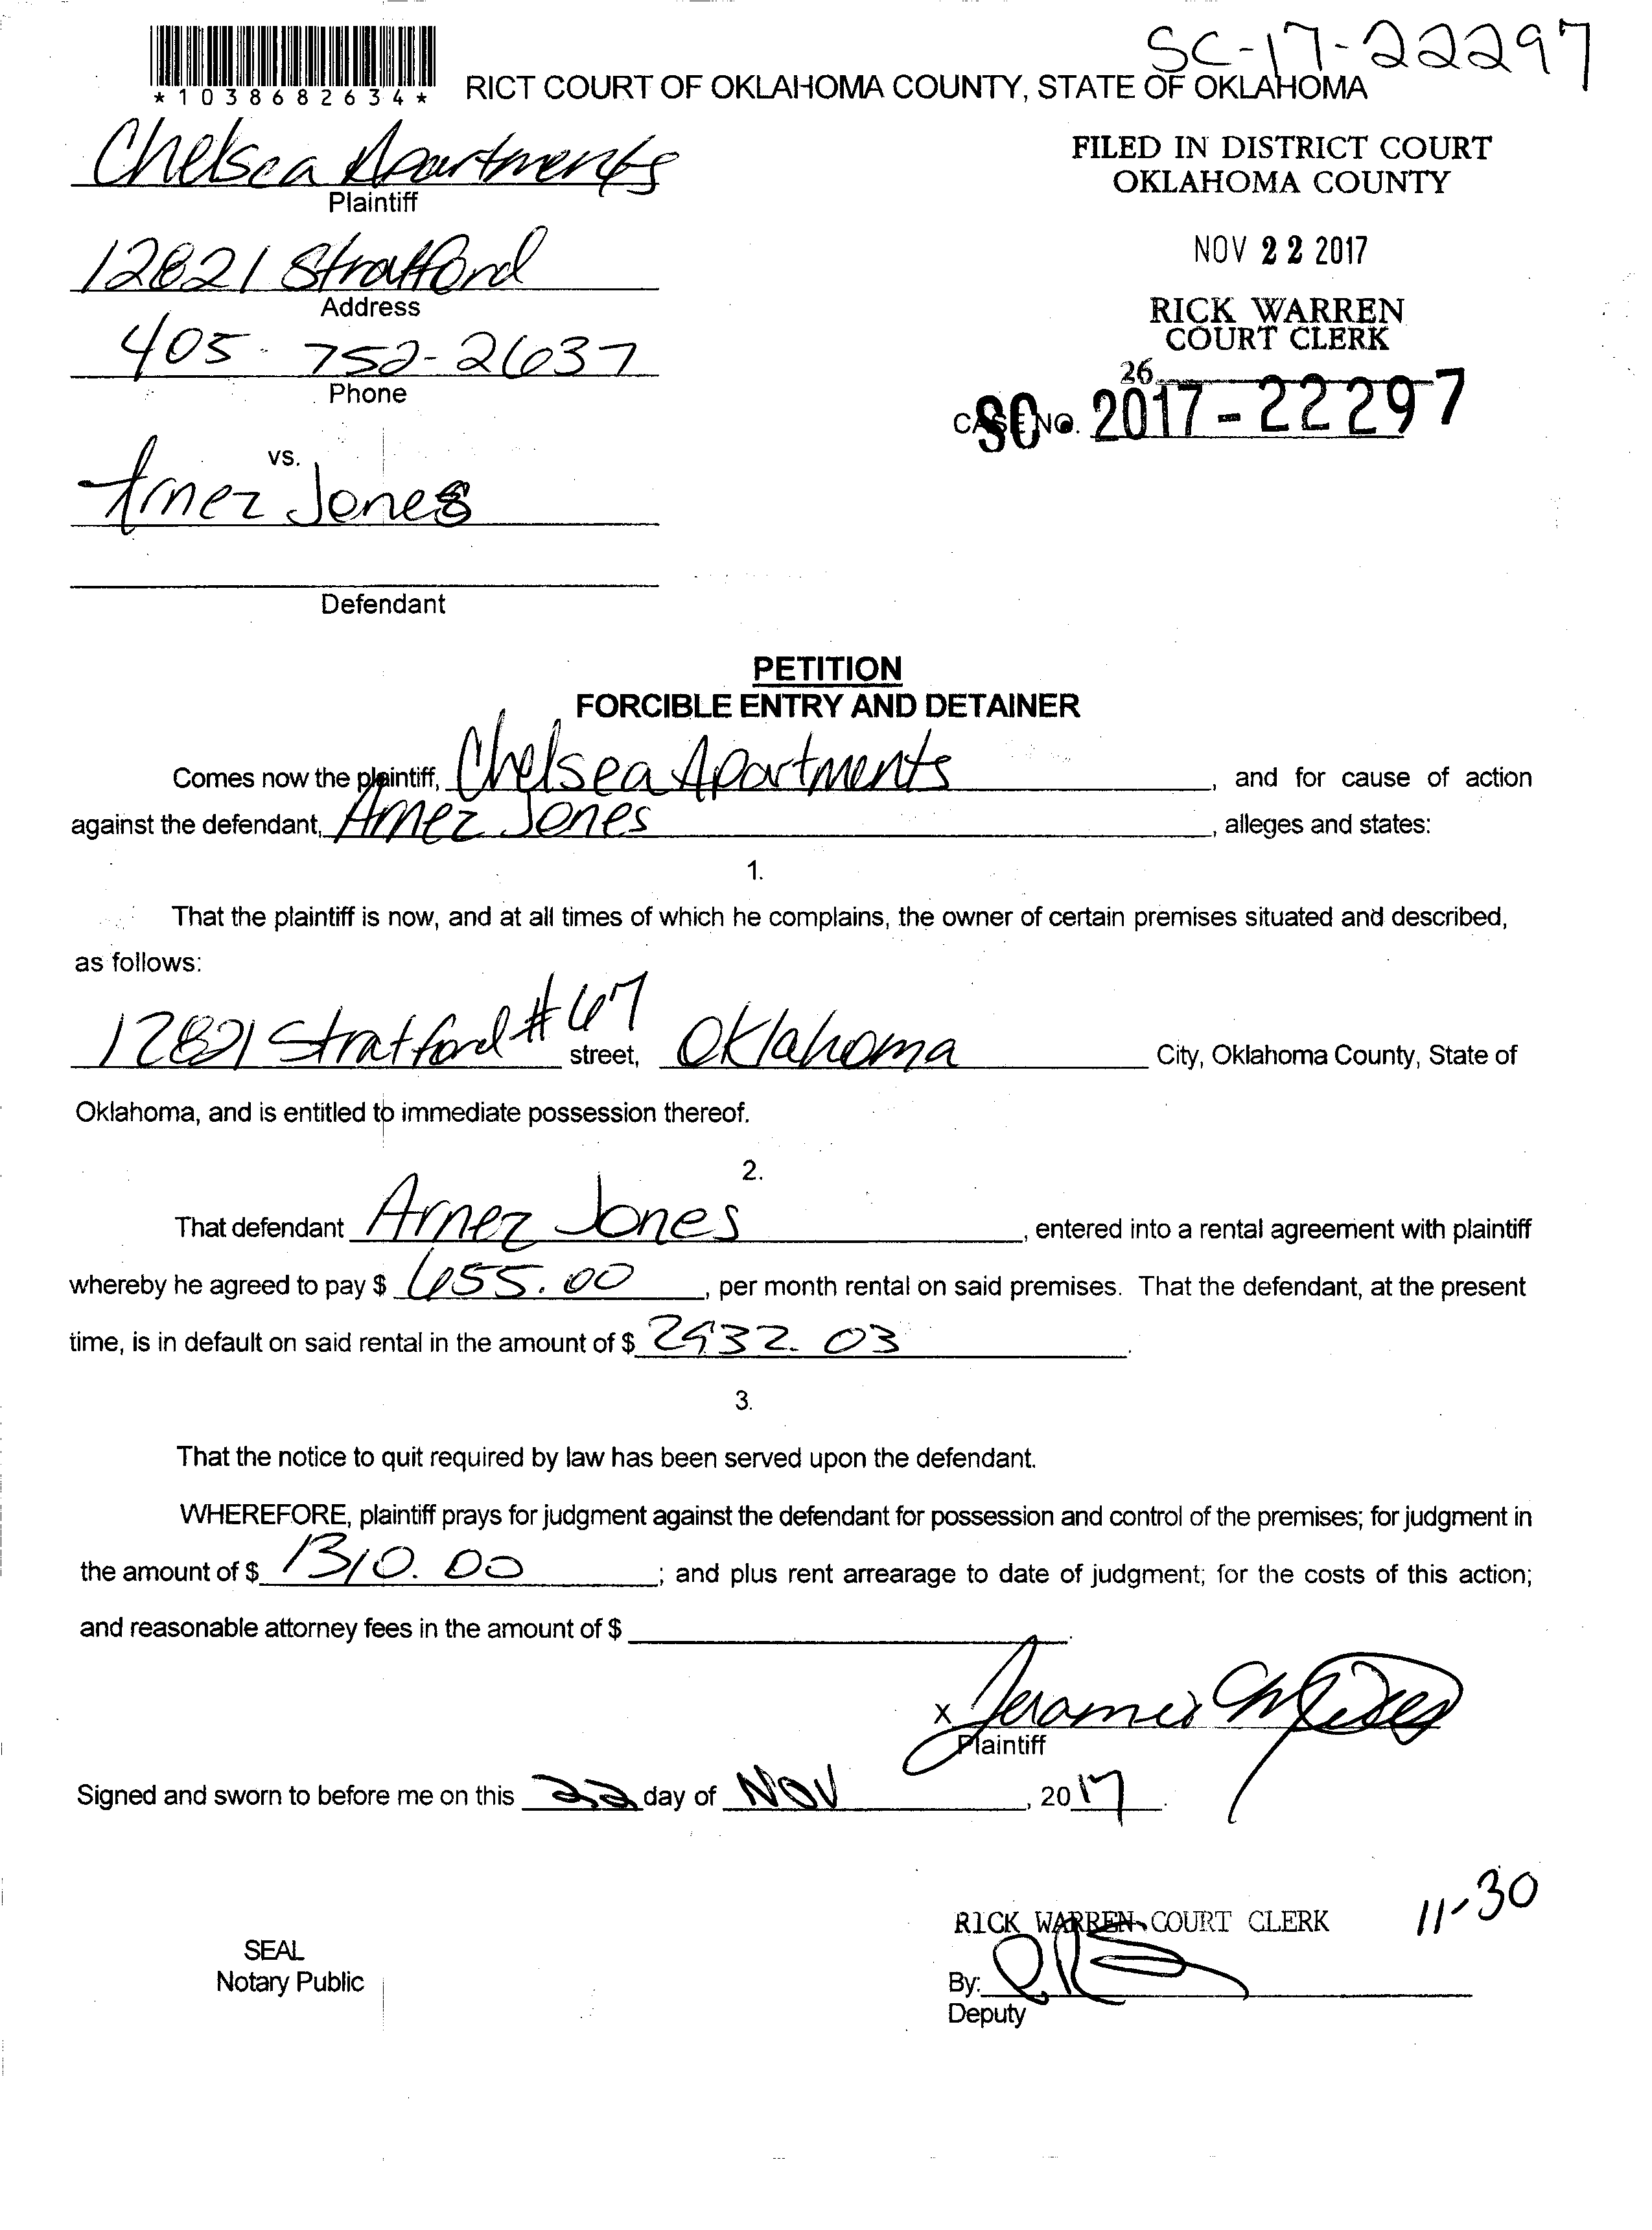 SC-17-22297
*1038682634* RICT COURT OF OKLAHOMA COUNTY, STATE OF OKLAHOMA
Chelsea Apartments
Plaintiff
FILED IN DISTRICT COURT
OKLAHOMA COUNTY
12821 Stratford
Address
NOV 22 2017
405-752-2637
Phone
RICK WARREN
COURT CLERK
26
CASE NO. SC 2017-22297
vs.
Arnez Jones
Defendant
PETITION
FORCIBLE ENTRY AND DETAINER
Comes now the plaintiff, Chelsea Apartments, and for cause of action
against the defendant, Arnez Jones, alleges and states:
1.
That the plaintiff is now, and at all times of which he complains, the owner of certain premises situated and described,
as follows:
12821 Stratford #67 street, Oklahoma City, Oklahoma County, State of
Oklahoma, and is entitled to immediate possession thereof.
2.
That defendant Arnez Jones, entered into a rental agreement with plaintiff
whereby he agreed to pay $ 655.00, per month rental on said premises. That the defendant, at the present
time, is in default on said rental in the amount of $ 2932.03.
3.
That the notice to quit required by law has been served upon the defendant.
WHEREFORE, plaintiff prays for judgment against the defendant for possession and control of the premises; for judgment in
the amount of $ 1310.00; and plus rent arrearage to date of judgment; for the costs of this action;
and reasonable attorney fees in the amount of $ .
x
Plaintiff
Signed and sworn to before me on this 22 day of NOV, 2017.
RICK WARREN COURT CLERK
11-30
SEAL
Notary Public
By:
Deputy